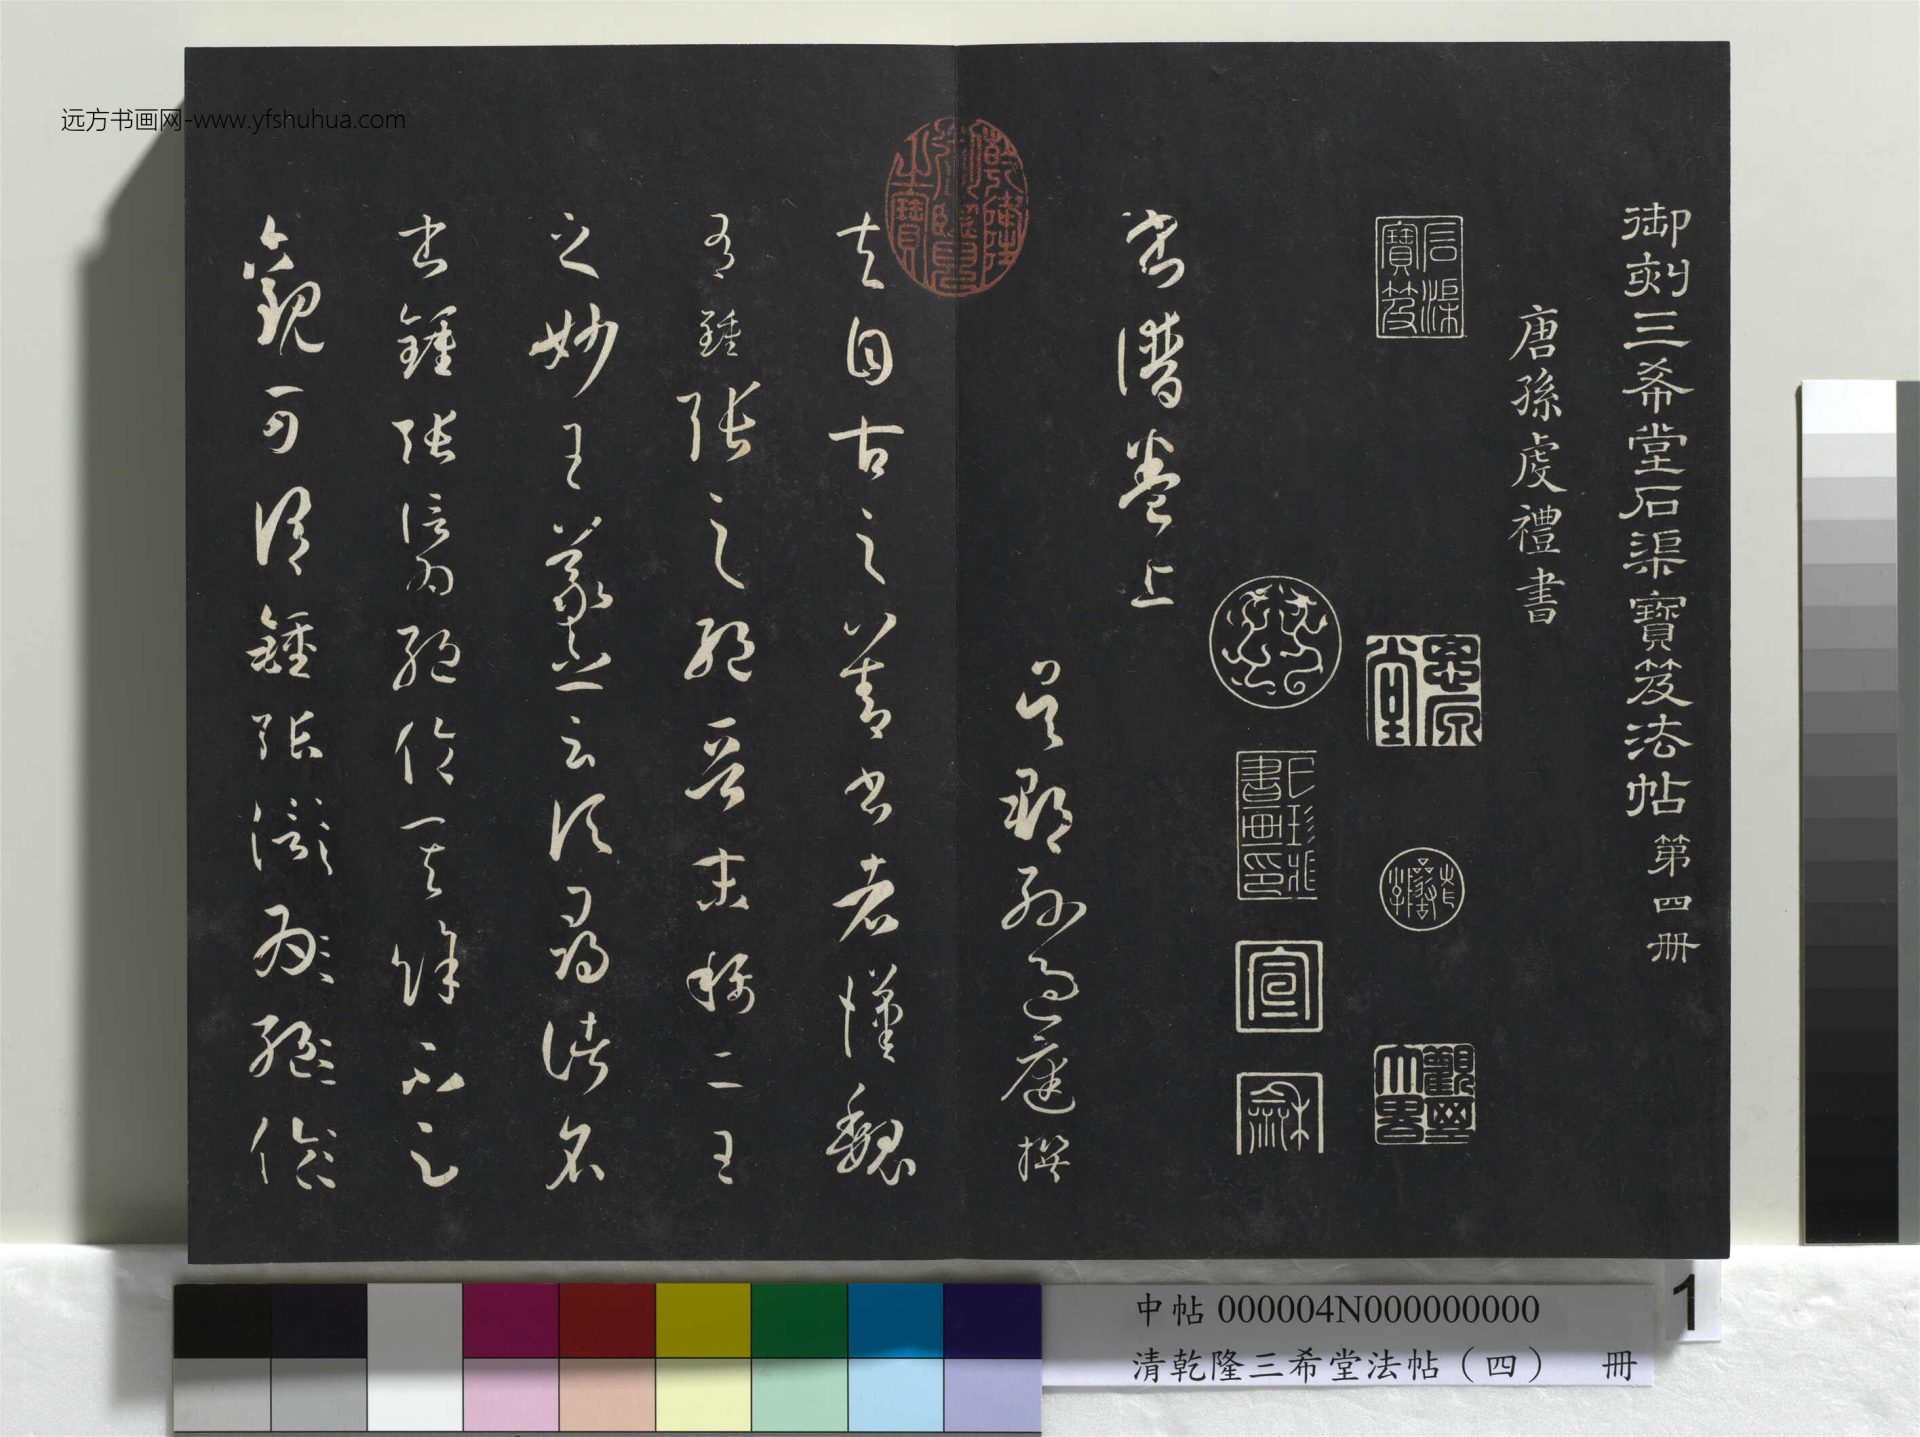 御刻三希堂石渠寶笈法帖 第四冊
唐孫虔禮書
石渠寶笈
思原堂
觀其大略
宣
龢
書譜卷上
吳郡孫過庭撰
夫自古之善書者漢魏
有鍾張之絕晉末稱二王
之妙王羲之云頃尋諸名
書鍾張信為絕倫其餘不足
觀可謂鍾張信為絕倫
远方书画网-www.yfshuhua.com
1
中帖 000004N000000000
清乾隆三希堂法帖（四） 冊